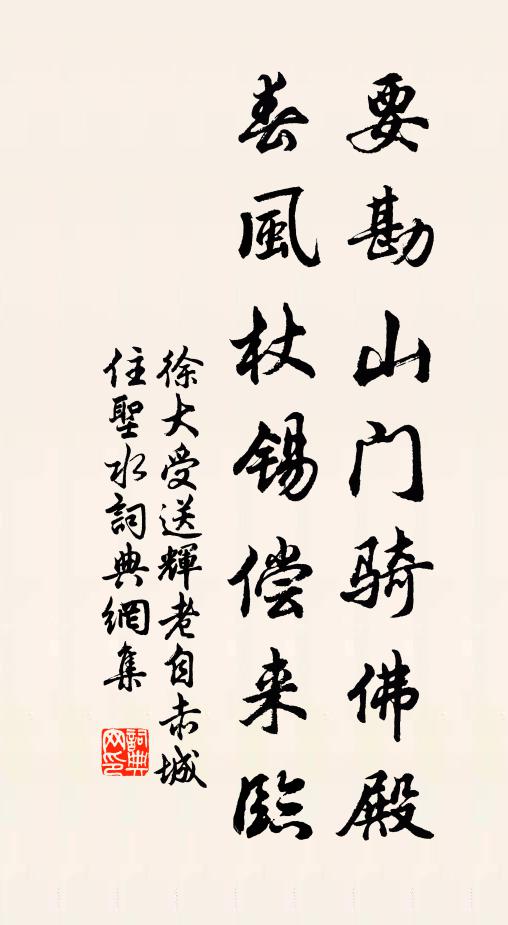 要勘山门骑佛殿
春風杖锡偿来臨
徐大受送輝老自赤城
住聖水詞典網集
詞典
网印